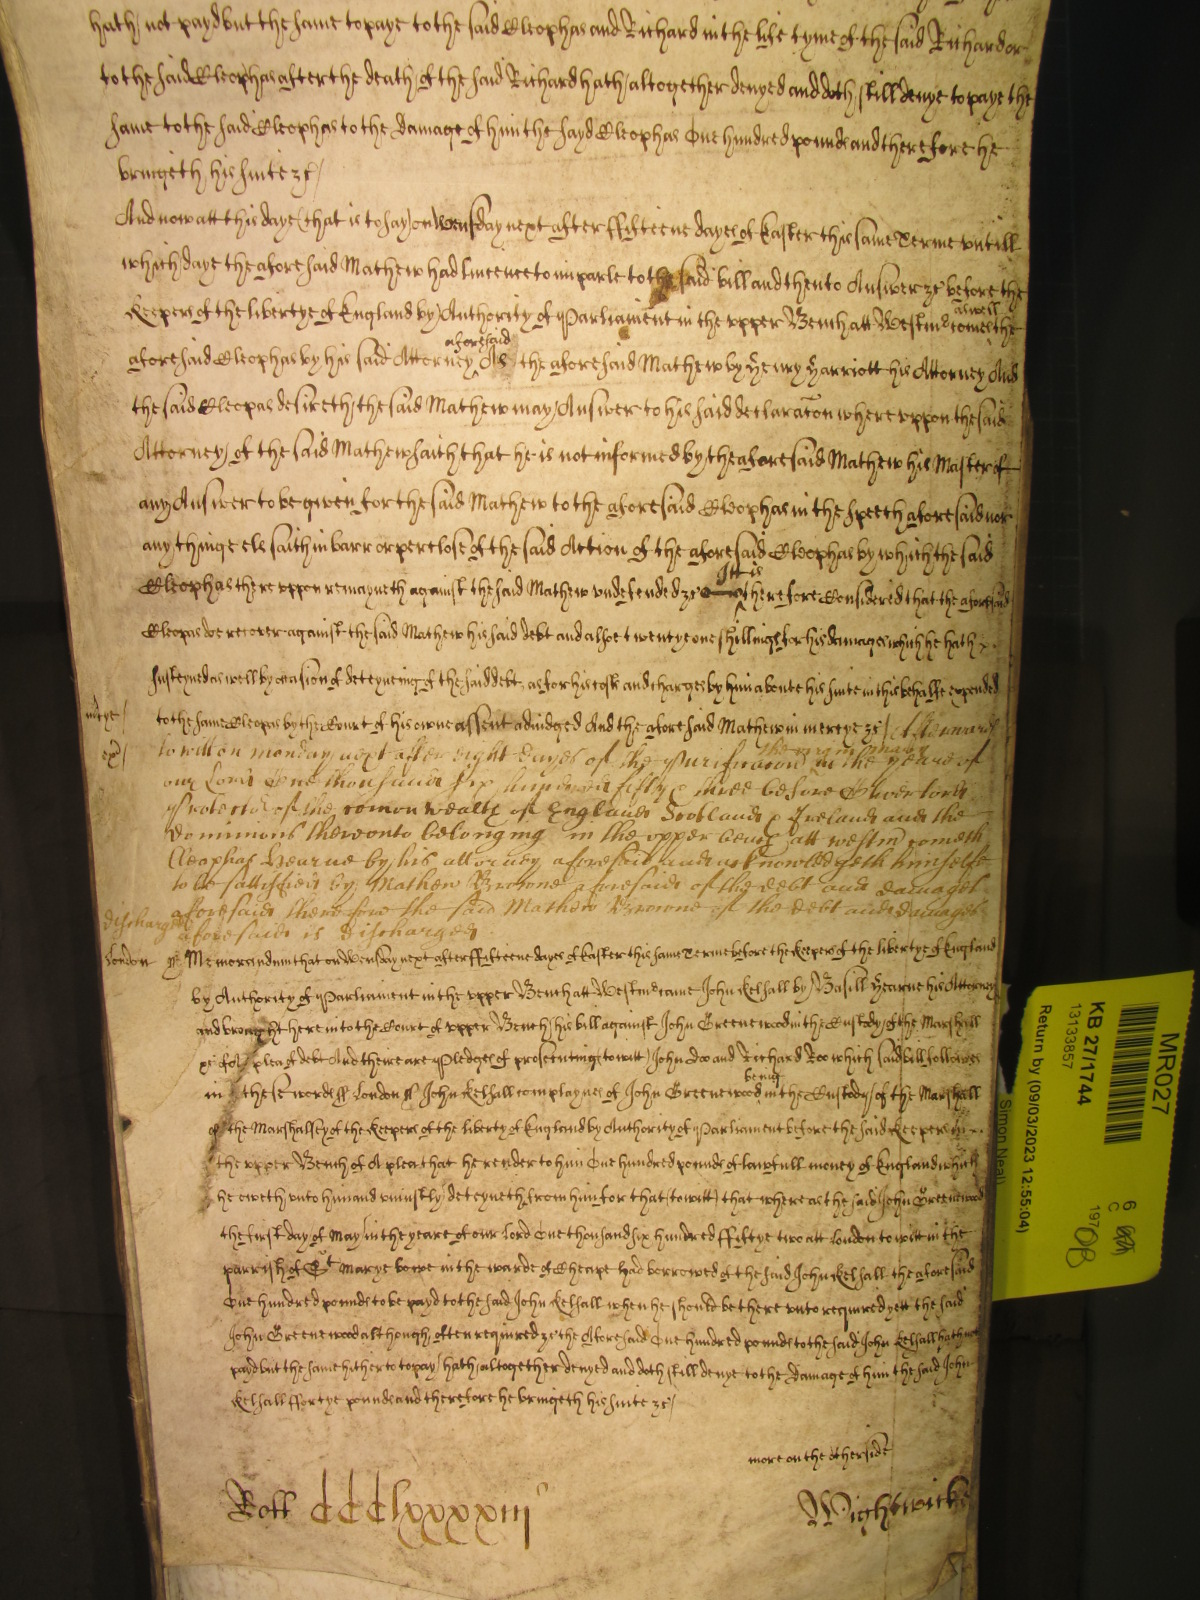 hath not payd but the same to paye to the said Cleophas and Richard in the life tyme of the said Richard or
to the said Cleophas after the death of the said Richard hath altogether denyed and doth still denye to paye the
same to the said Cleophas to the Damage of him the sayd Cleophas One hundred pounds and therefore he
bringeth his suite &c/
And now att this daye (that is to say) on Wensday next after ffifteene dayes of Easter this same Terme untill
which daye the aforesaid Mathew had lincence to imparle to the said bill and then to Answer &c before the
Keepers of the libertye of England by Authority of Parliament in the upper Bench att Westmr comes aswell the
aforesaid Cleophas by his said Attorney aforesaid As the aforesaid Mathew by Henry Harriott his Attorney And
the said Cleopas desireth the said Mathew may Answer to his said declaraton whereuppon the said
Attorney of the said Mathew saith that he is not informed by the aforesaid Mathew his Master of
any Answer to be given for the said Mathew to the aforesaid Cleophas in the speech aforesaid nor
any thinge els saith in barr or perclose of the said Action of the aforesaid Cleophas by which the said
Cleophas thereuppon remayneth against the said Mathew undefended &c Itt is therefore Considered that the aforesaid
Cleopas doe recover against the said Mathew his said debt and alsoe twentye one shillings for his damages which he hath
susteyned as well by occasion of deteyneing of the said debt as for his costs and charges by him aboute his suite in this behalfe expended
mercye/ to the same Cleopas by the Court of his owne assent adiudged And the aforesaid Mathew in mercye &c/ Afterwards
ex/ to witt on monday next after eight dayes of the purificacon of the virgin mary in the yeare of
our Lord One thousand six hundred fifty & three before Oliver lord
Protector of the comon wealth of England Scotland & Ireland and the
dominions thereunto belonging in the upper bench att westmr cometh
Cleophas Hearne by his attorney aforesaid and acknowledgeth himselfe
to be sattisfied by Mathew Browne aforesaid of the debt and damages
discharged aforesaid therefore the said Mathew Browne of the debt and damages
aforesaid is discharged.
London ss Memorandum that on Wensday next after ffifteene dayes of Easter this same Terme before the Keepers of the libertye of England
by Authority of Parliament in the upper Bench att Westmr came John Kelsall by Basill Hearne his Attorney
and brought here into the Court of upper Bench his bill against John Greenewood in the Custody of the Marshall
&c of a plea of debt And there are Pledges of prosecutinge to witt John Doo and Richard Roo which said bill followes
in these words ss London ss John Kelsall complaynes of John Greenewood being in the Custody of the Marshall
of the Marshalsey of the Keepers of the liberty of England by Authority of Parliament before the said Keepers in
the upper Bench of A plea that he render to him One hundred pounds of lawfull money of England which
he oweth unto him and uniustly deteyneth from him for that (to witt) that whereas the said John Greenewood
the first day of May in the yeare of our Lord One thousand six hundred ffiftye two att London to witt in the
parrish of St Marye bowe in the warde of Cheape had borrowed of the said John Kelsall the aforesaid
One hundred pounds to be payd to the said John Kelsall when he should be thereunto required yett the said
John Greenewood although often required &c the Aforesaid One hundred pounds to the said John Kelsall hath not
payd but the same hitherto to pay hath altogether denyed and doth still denye to the Damage of him the said John
Kelsall ffortye pounds and therefore he bringeth his suite &c/
more on the other side
Roll CCClxxxxiiij
Wightwicke
MR027
KB 27/1744
13133857
Return by (09/03/2023 12:55:04)
Simon Neal
6
C
197